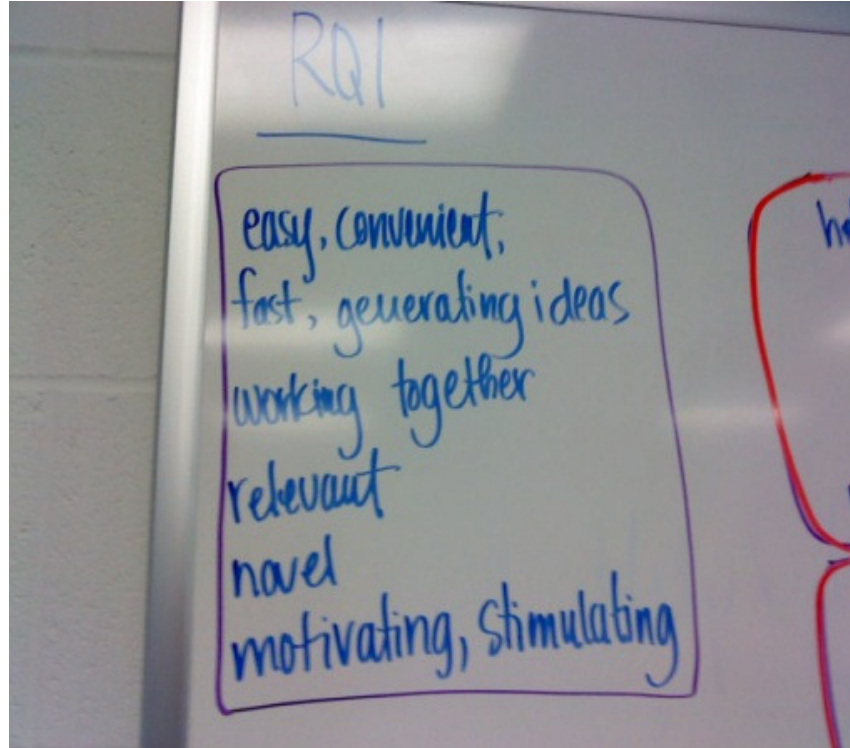 RQ1
easy, convenient,
fast, generating ideas
working together
relevant
novel
motivating, stimulating